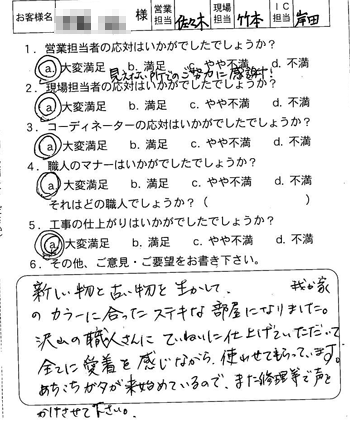 お客様名 様 営業担当 佐々木 現場担当 竹本 IC担当 岸田
1．営業担当者の応対はいかがでしたでしょうか？
ⓐ.大変満足 b.満足 c.やや不満 d.不満
見えない所でのご努力に感謝！
2．現場担当者の応対はいかがでしたでしょうか？
ⓐ.大変満足 b.満足 c.やや不満 d.不満
3．コーディネーターの応対はいかがでしたでしょうか？
ⓐ.大変満足 b.満足 c.やや不満 d.不満
4．職人のマナーはいかがでしたでしょうか？
ⓐ.大変満足 b.満足 c.やや不満 d.不満
それはどの職人でしょうか？（ ）
5．工事の仕上がりはいかがでしたでしょうか？
ⓐ.大変満足 b.満足 c.やや不満 d.不満
6．その他、ご意見・ご要望をお書き下さい。
新しい物と古い物と生かして、我が家
のカラーに合ったステキな部屋になりました。
沢山の職人さんにていねいに仕上げていただいて
全てに愛着を感じながら、使わせてもらっています。
あちこちガタが来始めているので、また修理等で声を
かけさせて下さい。